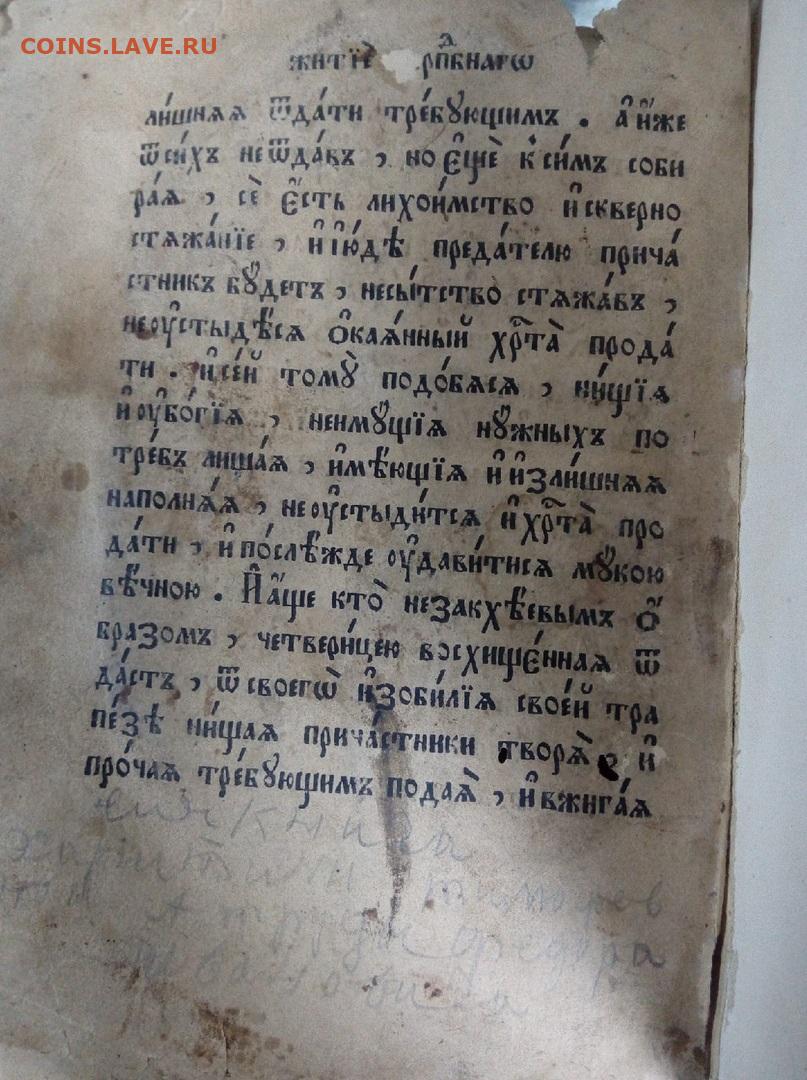 COINS.LAVE.RU
житїѐ рпⷣбнагѡ
ли́шняѧ ѿда́ти тре́бꙋющимъ . а҆ и҆́же
ѿси́хъ неѿда́въ , но є҆щѐ к' си́мъ соби
ра́ѧ , сѐ є҆́сть лихои́мство и҆скверно
стѧжа́нїе , и҆ і҆ю́дѣ преда́телю прича́
стникъ бꙋ́детъ , несы́тство стѧжа́въ ,
неоу҆стыдѣ́сѧ ѻ҆каѧ́нный хрⷭ҇та̀ прода́
ти . и҆се́й томꙋ̀ подо́бѧсѧ , ни́щїѧ
и҆ оу҆бо́гїѧ , неимꙋ́щїѧ нꙋ́жныхъ по
тре́бъ лиша́ѧ , и҆мѣ́ющїѧ и҆ и҆зли́шнѧѧ
наполнѧ́ѧ , неоу҆стыди́тсѧ и҆ хрⷭ҇та̀ про
да́ти , и҆ по́слѣжде оу҆дави́тисѧ мꙋ́кою
вѣ́чною . И҆ а҆́ще кто̀ незакхѣ́евымъ ѻ҆́
бразомъ , четвери́цею восхище́ннаѧ ѿ
да́стъ , ѿ своегѡ̀ и҆зоби́лїѧ свое́й тра
пе́зѣ ни́щаѧ прича́стники творѧ̀ , и҆
про́чаѧ тре́бꙋющимъ подаѧ̀ , и҆ вжига́ѧ
книга
федора